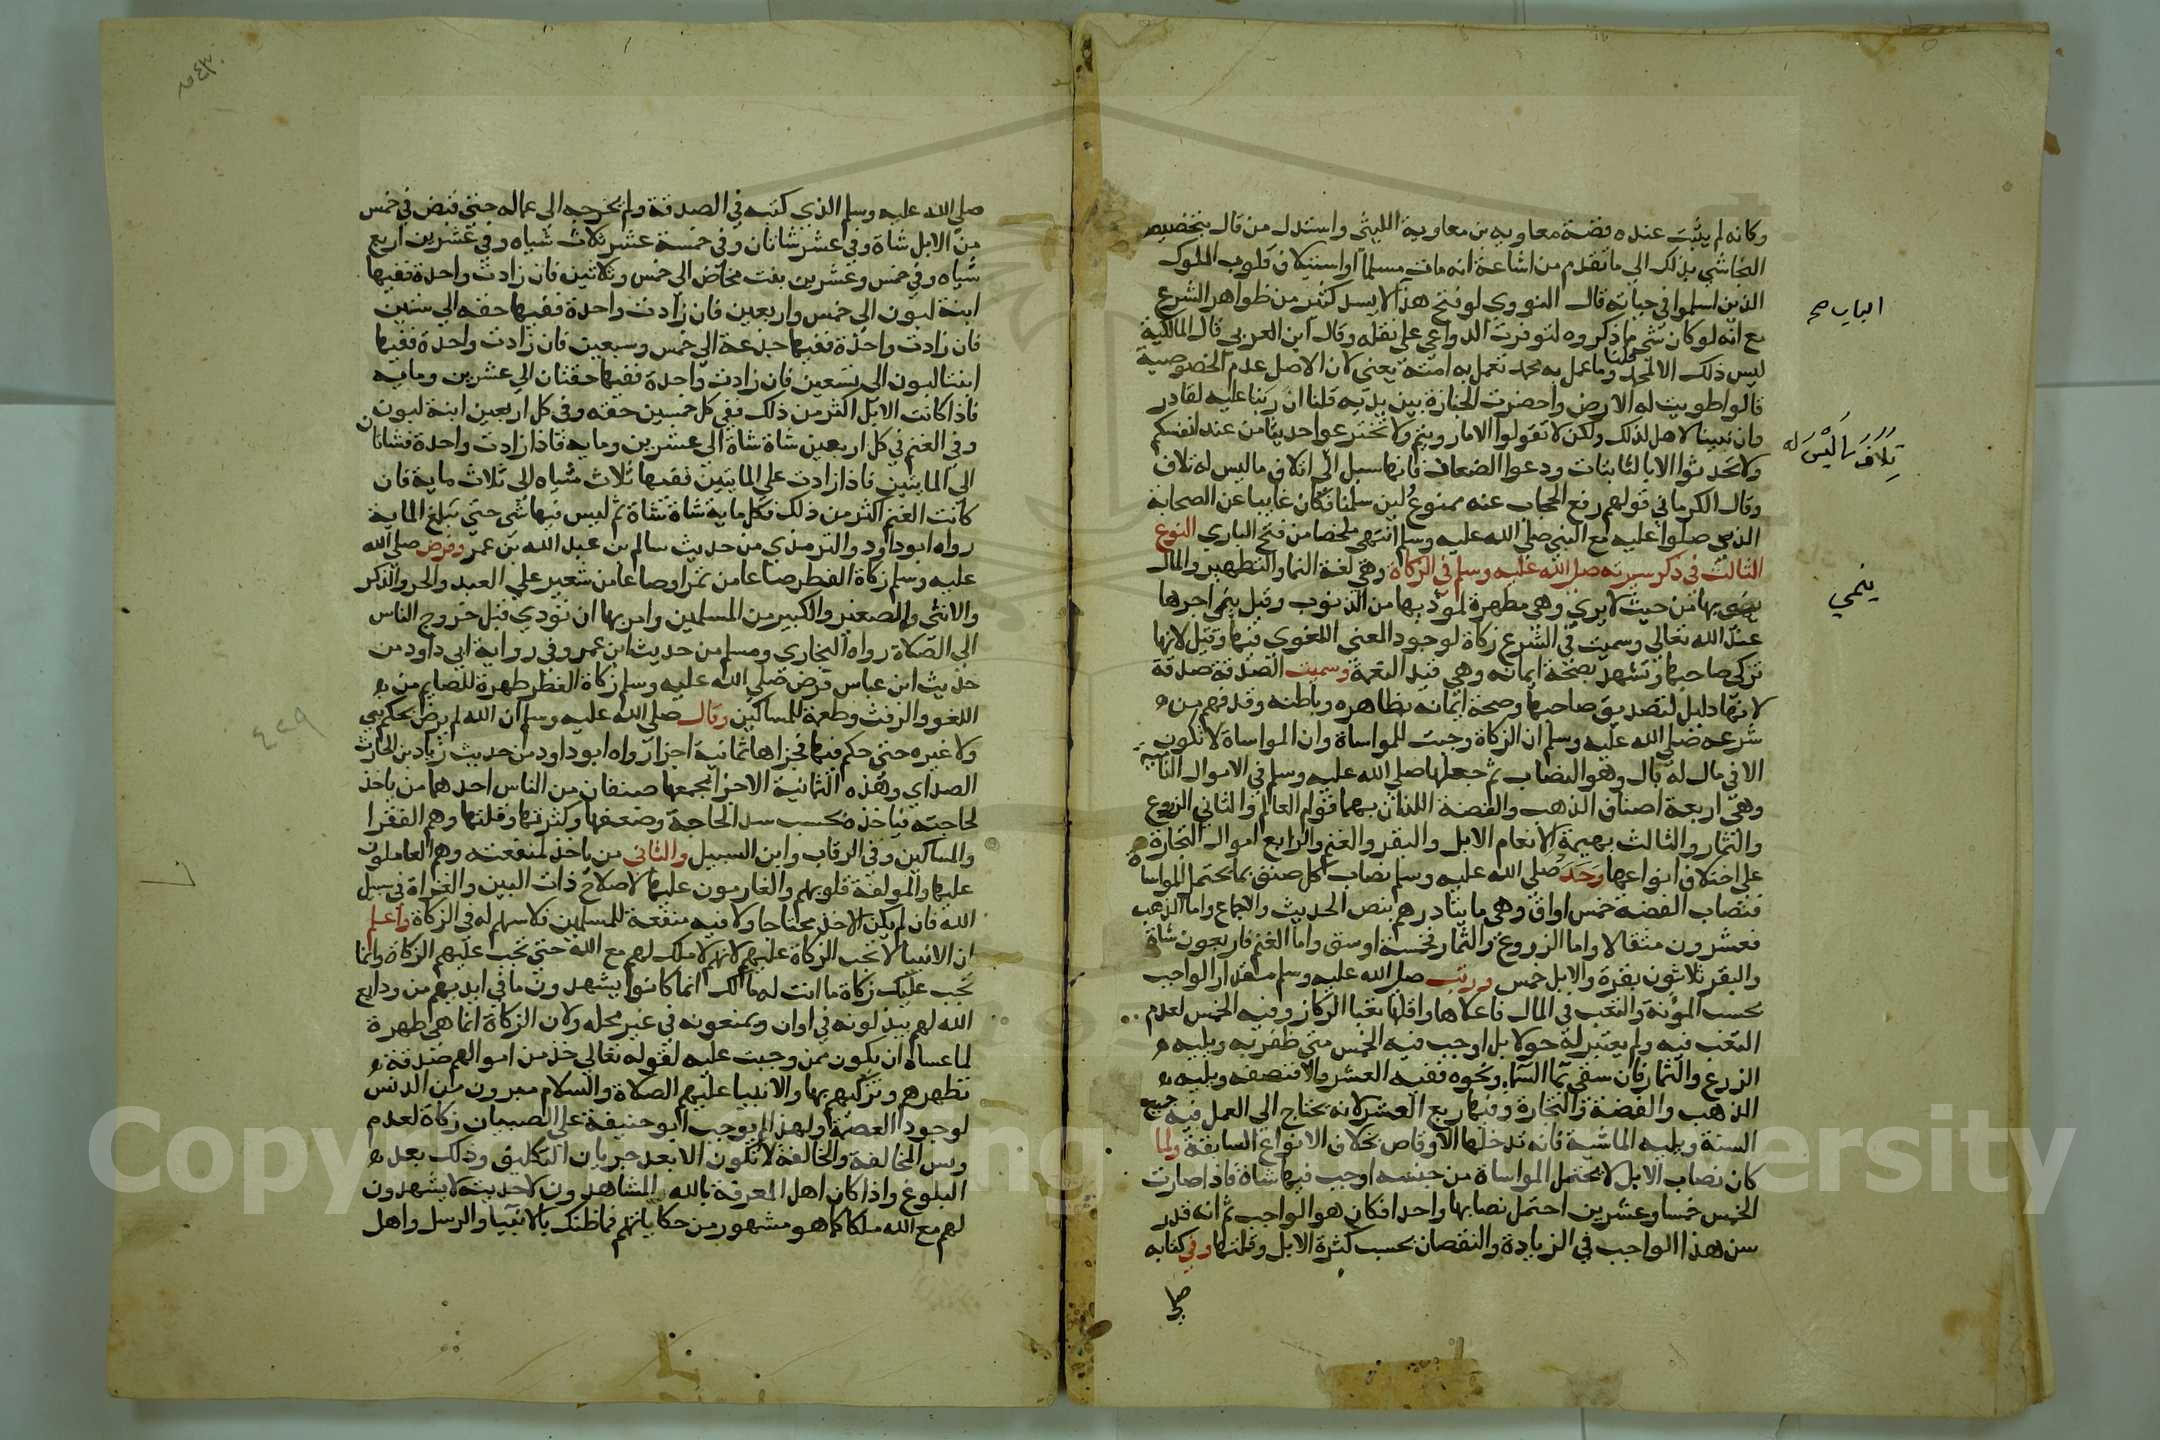 وكانه لم يثبت عنده قصة معاويه بن معاوية الليثي واستدل من قال بتخصيص
النجاشي بذلك الي ما تقدم من اشاعة انه مات مسلما او استيلاف قلوب الملوك
الذين اسلموا في حياته قال النووي لو فتح هذا لا يسد كثير من ظواهر الشرع
مع انه لو كان شي ما ذكروه لتوفرت الدواعي علي نقله وقال ابن العربي قال المالكية
ليس ذلك الا لمحمد قلنا وما عمل به محمد تعمل به امته يعني لان الاصل عدم الخصوصية
قالوا طويت له الارض واحضرت الجنازة بين يديه قلنا ان ربنا عليه لقادر
وان نبينا لاهل لذلك ولكن لا تقولوا الا ما رويتم ولا تخترعوا حديثا من عند انفسكم
ولا تحدثوا الا بالثابتات ودعوا الضعاف فانها سبل الي اتلاف ما ليس له تلاف
وقال الكرماني قولهم رفع الحجاب عنه ممنوع لين سلمنا فكان غايبا عن الصحابة
الذين صلوا عليه مع النبي صلي الله عليه وسلم انتهي ملخصا من فتح الباري النوع
الثالث في ذكر سيرته صلي الله عليه وسلم في الزكاة وهي لغة النما والتطهير والمال
بها من حيث لا يري وهي مطهرة لمؤديها من الذنوب وقيل ينمي اجرها
عند الله تعالي وسميت في الشرع زكاة لوجود المعني اللغوي فيها وقيل لانها
تزكي صاحبها وتشهد بصحة ايمانه وهي قيد النعمة وسميت الصدقة صدقة
لانها دليل لتصديق صاحبها وصحة ايمانه بظاهره وباطنه وقد فهم من
شرعه صلي الله عليه وسلم ان الزكاة وجبت للمواساة وان المواساة لا تكون
الا في مال له بال وهو النصاب ثم جعلها صلي الله عليه وسلم في الاموال النامية
وهي اربعة اصناف الذهب والفضة اللذان بهما قوام العالم والثاني الزروع
والثمار والثالث بهيمة الانعام الابل والبقر والغنم والرابع اموال التجارة
علي اختلاف انواعها وحدد صلي الله عليه وسلم نصاب كل صنف بما يحتمل المواساة
فنصاب الفضة خمس اواق وهي مايتا درهم بنص الحديث والاجماع واما الذهب
فعشرون مثقالا واما الزروع والثمار فخمسة اوسق واما الغنم فاربعون شاة
والبقر ثلاثون بقرة والابل خمس ورتب صلي الله عليه وسلم مقدار الواجب
بحسب المؤنة والتعب في المال فاعلاها واقلها تعبا الركاز وفيه الخمس لعدم
التعب فيه ولم يعتبر له حولا بل اوجب فيه الخمس متي ظفر به ويليه
الزرع والثمار فان سقي بما السما ونحوه ففيه العشر والا فنصفه ويليه
الذهب والفضة والتجارة وفيها ربع العشر لانه يحتاج الي العمل فيه جميع
السنة ويليه الماشية فانه تدخلها الاوقاص بخلاف الانواع السابقة ولما
كان نصاب الابل لا يحتمل المواساة من جنسه اوجب فيها شاة فاذا صارت
الخمس خمسا وعشرين احتمل نصابها واحدا فكان هو الواجب ثم انه قدر
سن هذا الواجب في الزيادة والنقصان بحسب كثرة الابل وقلتها وفي كتابه
صلي
الباب صح
تلاف ما ليس له
ينمي
صلي الله عليه وسلم الذي كتبه في الصدقة ولم يخرجه الي عماله حتي قبض في خمس
من الابل شاة وفي عشر شاتان وفي خمسة عشر ثلاث شياه وفي عشرين اربع
شياه وفي خمس وعشرين بنت مخاض الي خمس وثلاثين فان زادت واحدة ففيها
ابنة لبون الي خمس واربعين فان زادت واحدة ففيها حقه الي ستين
فان زادت واحدة ففيها جذعة الي خمس وسبعين فان زادت واحدة ففيها
ابنتا لبون الي تسعين فان زادت واحدة ففيها حقتان الي عشرين وماية
فاذا كانت الابل اكثر من ذلك ففي كل خمسين حقه وفي كل اربعين ابنة لبون
وفي الغنم في كل اربعين شاة شاة الي عشرين وماية فاذا زادت واحدة فشاتان
الي المايتين فاذا زادت علي المايتين ففيها ثلاث شياه الي ثلاث ماية فان
كانت الغنم اكثر من ذلك فكل ماية شاة شاة ثم ليس فيها شي حتي تبلغ الماية
رواه ابو داود والترمذي من حديث سالم بن عبد الله بن عمر وفرض صلي الله
عليه وسلم زكاة الفطر صاعا من تمر او صاعا من شعير علي العبد والحر والذكر
والانثي والصغير والكبير من المسلمين وامر بها ان تؤدي قبل خروج الناس
الي الصلاة رواه البخاري ومسلم من حديث ابن عمر وفي رواية ابي داود من
حديث ابن عباس فرض صلي الله عليه وسلم زكاة الفطر طهرة للصايم من
اللغو والرفث وطعمة للمساكين وقال صلي الله عليه وسلم ان الله لم يرض بحكم نبي
ولا غيره حتي حكم فيها فجزاها ثمانية اجزا رواه ابو داود من حديث زياد بن الحارث
الصداي وهذه الثمانية الاجزا يجمعها صنفان من الناس احدهما من ياخذ
لحاجته فياخذ بحسب سد الحاجة وضعفها وكثرتها وقلتها وهم الفقرا
والمساكين وفي الرقاب وابن السبيل والثاني من ياخذ لمنفعته وهم العاملون
عليها والمولفة قلوبهم والغارمون عليها لاصلاح ذات البين والغزاة في سبيل
الله فان لم يكن الاخذ محتاجا ولا فيه منفعة للمسلمين فلا سهم له في الزكاة واعلم
ان الانبيا لا تجب الزكاة عليهم لانهم لا ملك لهم مع الله حتي تجب عليهم الزكاة وانما
تجب عليك زكاة ما انت له مالك انما كانوا يشهدون ما في ايديهم من ودايع
الله لهم يبذلونه في اوان ويمنعونه في غير محله ولان الزكاة انما هي طهرة
لما عساه ان يكون ممن وجبت عليه لقوله تعالي خذ من اموالهم صدقة
تطهرهم وتزكيهم بها والانبيا عليهم الصلاة والسلام مبرون من الدنس
لوجود العصمة ولهذا لم يوجب ابو حنيفة علي الصبيان زكاة لعدم
دنس المخالفة والمخالفة لا تكون الا بعد جريان التكليف وذلك بعد
البلوغ واذا كان اهل المعرفة بالله المشاهدون لاحديته لا يشهدون
لهم مع الله ملكا كما هو مشهور من حكاياتهم فما ظنك بالانبيا والرسل واهل
٤٢٩